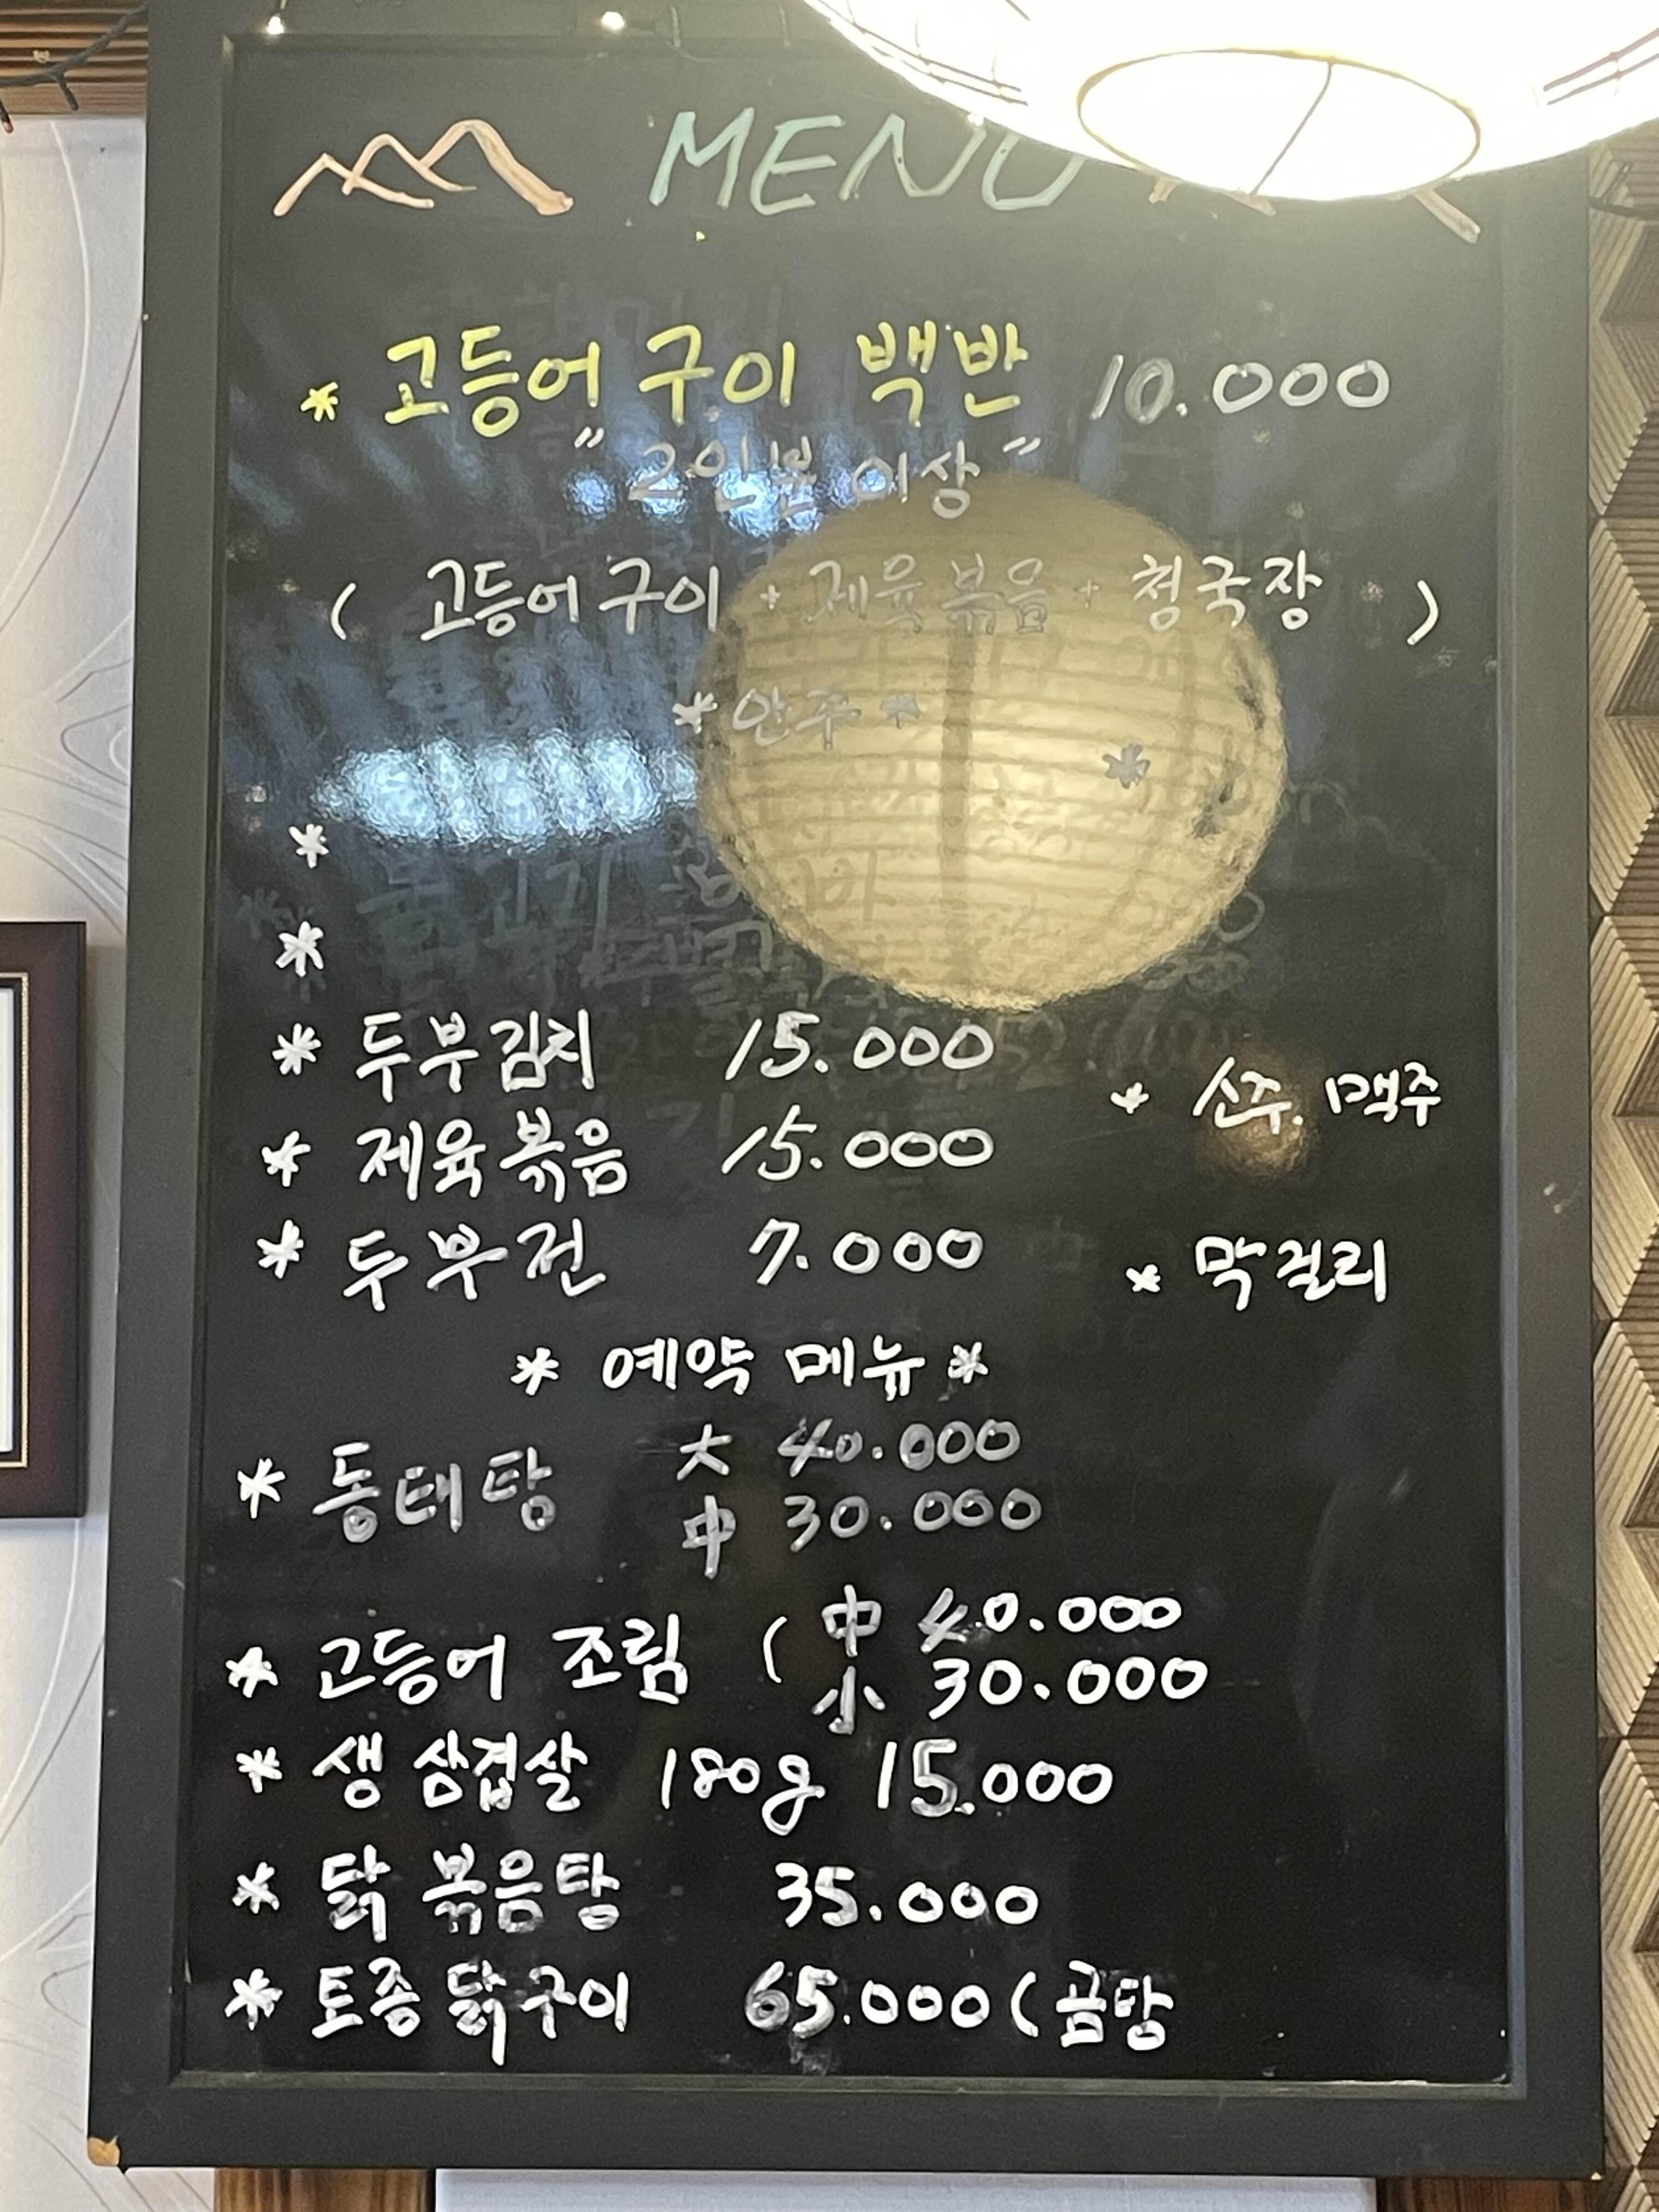 MENU
* 고등어 구이 백반 10.000
" 2인분 이상 "
( 고등어구이 + 제육볶음 + 청국장 )
* 안주 *
*
*
*
* 두부김치 15.000
* 소주. 맥주
* 제육볶음 15.000
* 두부전 7.000
* 막걸리
* 예약 메뉴 *
* 동태탕 大 40.000
中 30.000
* 고등어 조림 ( 中 40.000
小 30.000
* 생 삼겹살 180g 15.000
* 닭 볶음탕 35.000
* 토종 닭구이 65.000 ( 곰탕